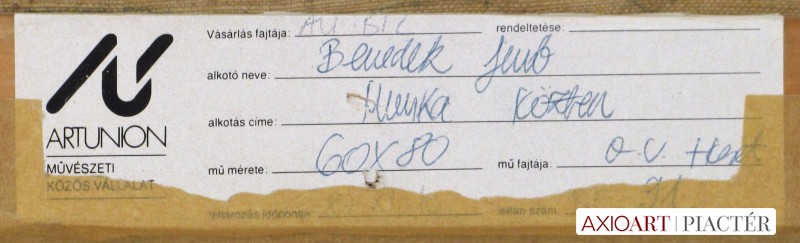 Vásárlás fajtája: AU. BIZ rendeltetése:
alkotó neve: Benedek Jenő
alkotás címe: Munka közben
mű mérete: 60x80 mű fajtája: o. v.
ARTUNION
MŰVÉSZETI
KÖZÖS VÁLLALAT
leltározás időpontja: leltári szám: 91
AXIOART | PIACTÉR